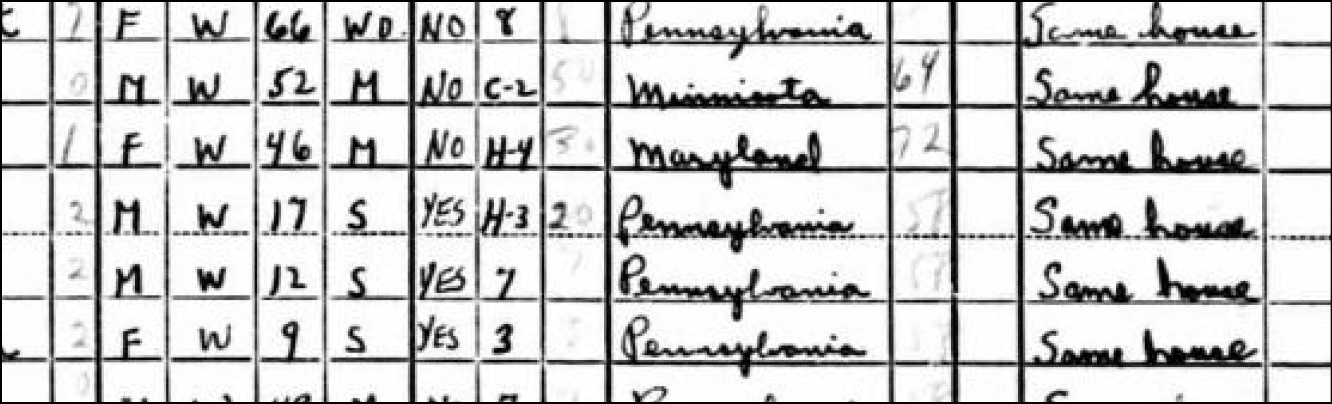 7 F W 66 WD NO 8 Pennsylvania Same house
0 M W 52 M NO C-2 50 Minnisota 64 Same house
1 F W 46 M NO H-4 30 Maryland 72 Same house
2 M W 17 S YES H-3 20 Pennsylvania 58 Same house
2 M W 12 S YES 7 7 Pennsylvania 58 Same house
2 F W 9 S YES 3 3 Pennsylvania Same house